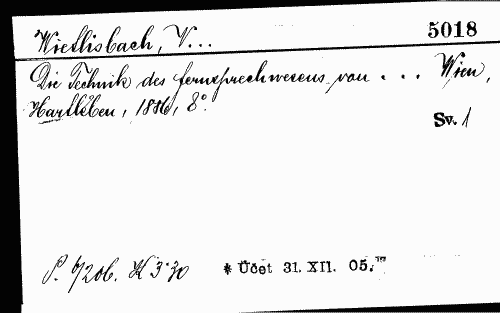 Wietlisbach, V... 5018
Die Technik des fernsprechwesens von ... Wien,
Hartleben, 1886, 8°.
Sv. 1
P. 6/206. K 3·30 * Účet 31. XII. 05.